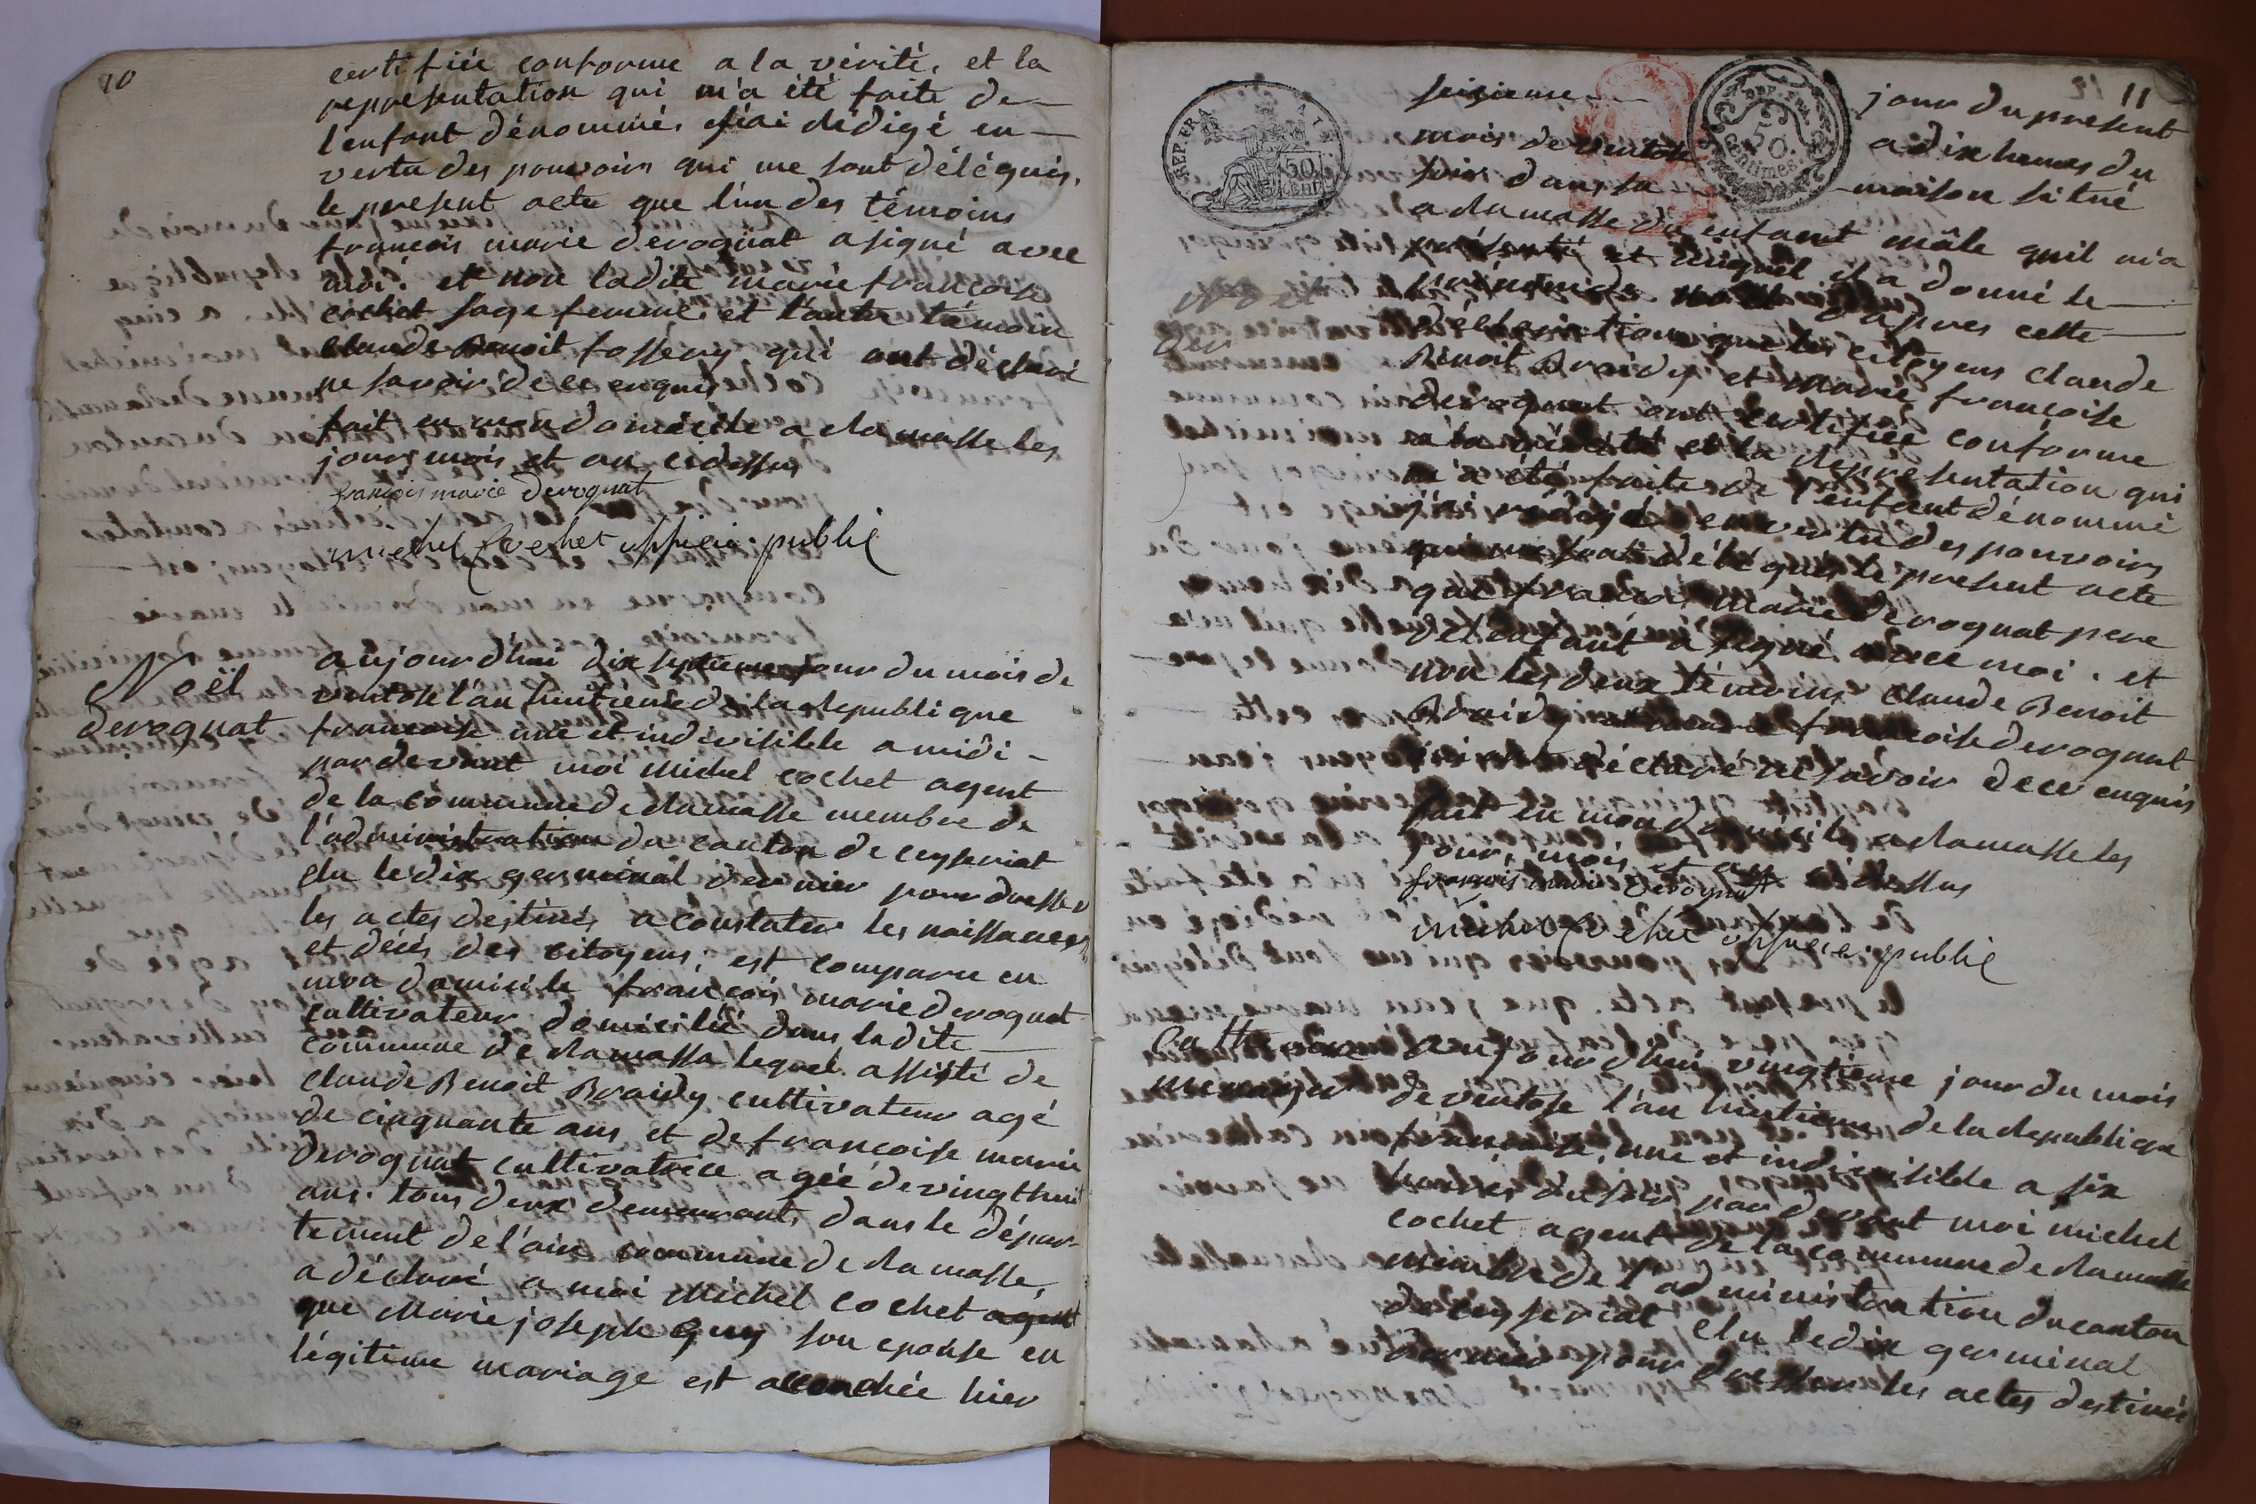 10
certifiée conforme a la vérité, et la
representation qui m'a été faite de
l'enfant dénommé. j'ai rédigé en
vertu des pouvoirs qui me sont délégués,
le present acte que l'un des témoins
francois marie deroguat a signé avec
moi. et non ladite marie francoise
cochet sage femme et l'autre témoin
claude Benoit fossery qui ont déclaré
ne savoir de ce enquis
fait en mon domicile a ramasse les
jours mois et an cidessus
francois marie Deroguat
michel Cochet officier public
Noël
deroguat
aujourdhui dix septieme jour du mois de
ventose l'an huitieme de la republique
francoise une et indivisible a midi
pardevant moi Michel cochet agent
de la commune de ramasse membre de
l'administration du canton de ceyseriat
elu le dix germinal dernier pour dresser
les actes destinés a constater les naissances
et décés des citoyens, est comparu en
mon domicile francois marie deroguat
cultivateur domicilié dans ladite
commune de ramasse lequel assisté de
claude Benoit Braidy cultivateur agé
de cinquante ans et de francoise marie
deroguat cultivatrice agée de vingt huit
ans. tous deux demeurants dans le dépar-
tement de l'ain commune de ramasse,
a déclaré a moi Michel cochet agent
que Marie joseph Guy son epouse en
légitime mariage est accouchée hier
11
REP. FRA
50
cent
REP. FRA
50
centimes
seizieme jour du present
mois de ventose a dix heures du
soir dans sa maison situé
a ramasse d'un enfant mâle quil m'a
présenté et auquel il a donné le
prénom de noël d'apres cette
déclaration que les citoyens claude
Benoit Braidy et marie francoise
deroguat ont certifiée conforme
a la vérité et la representation qui
m'a été faite de l'enfant dénommé
j'ai rédigé en vertu des pouvoirs
qui me sont délégués le present acte
que francois marie deroguat pere
de l'enfant a signé avec moi. et
non les deux témoins claude Benoit
Braidy et marie francoise deroguat
qui ont déclaré ne savoir de ce enquis
fait en mon domicile a ramasse les
jours mois et an cidessus
francois marie Deroguat
michel Cochet officier public
Catherine
aujourdhui vingtieme jour du mois
de ventose l'an huitieme de la republique
francoise une et indivisible a six
heures du soir pardevant moi michel
cochet agent de la commune de ramasse
membre de l'administration du canton
de ceyseriat elu le dix germinal
dernier pour dresser les actes destinés